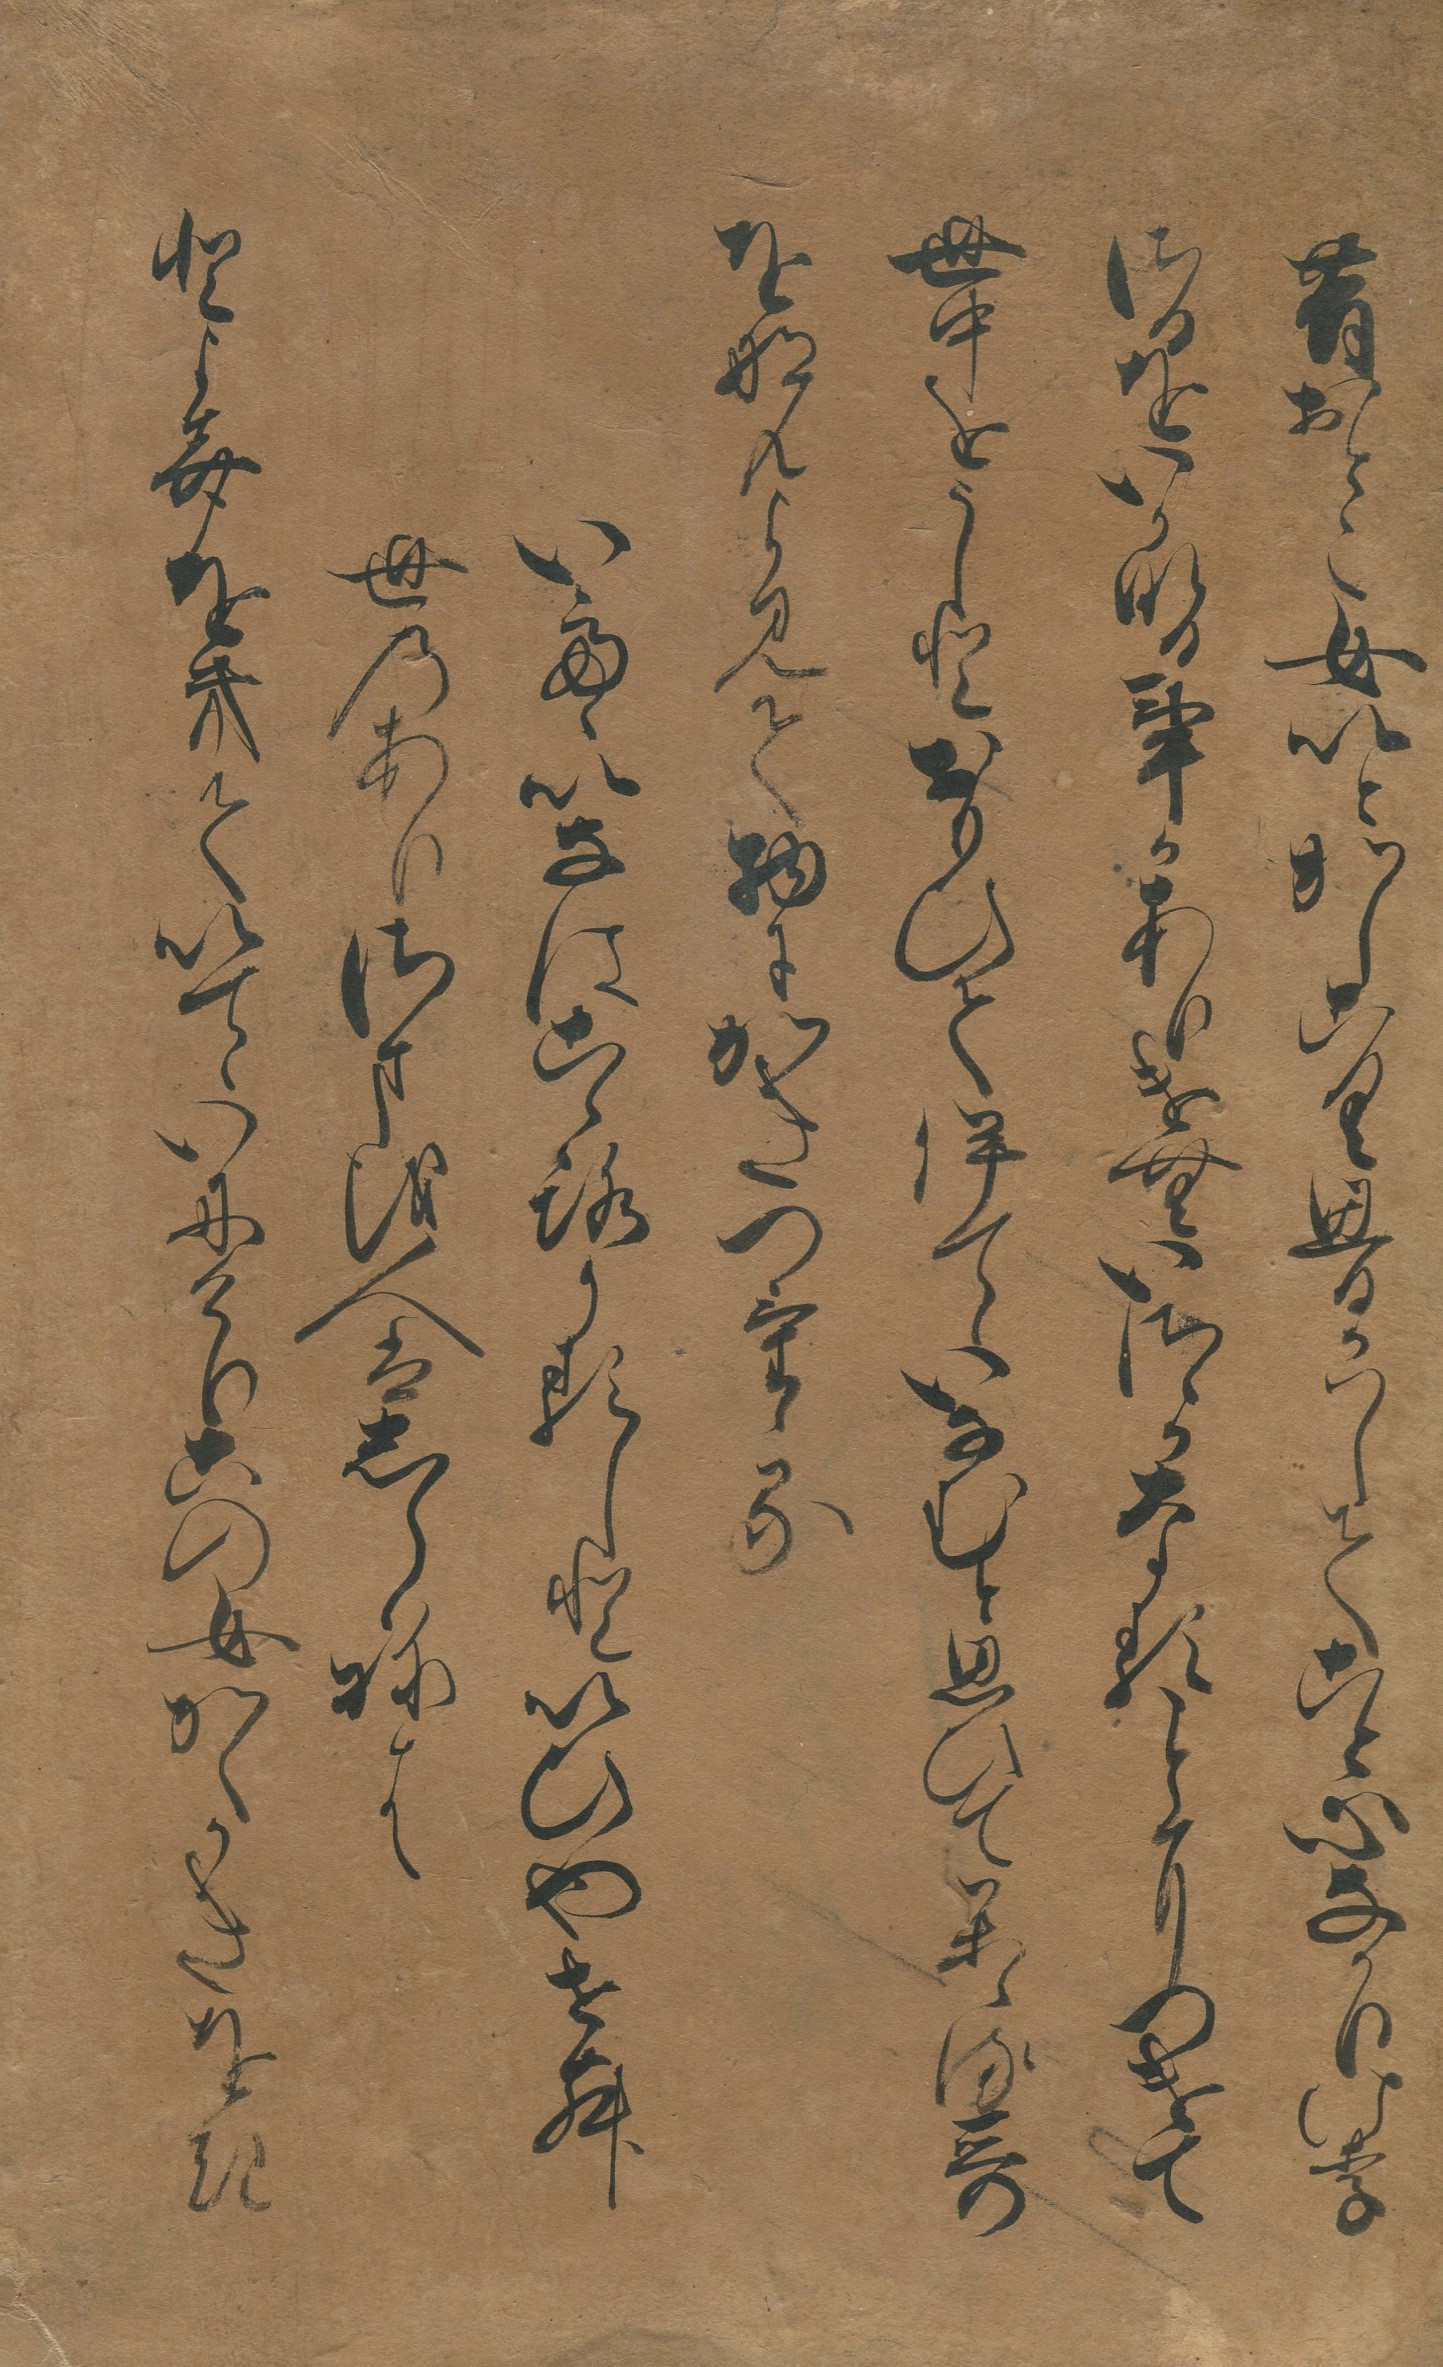 昔おとこ女いとかしこく思かはしてこと心なかりけり
さるをいかなる事かありけむいさゝかなることにつけて
世中をうしとおもひて伊てゝいなむと思ひてかゝる哥
をなんよみて物にかきつけゝる
いてゝいなは心かるしといひやせ舞
世のありさまを人はしらねは
とよみをきていてゝいにけりこの女かくかきをき